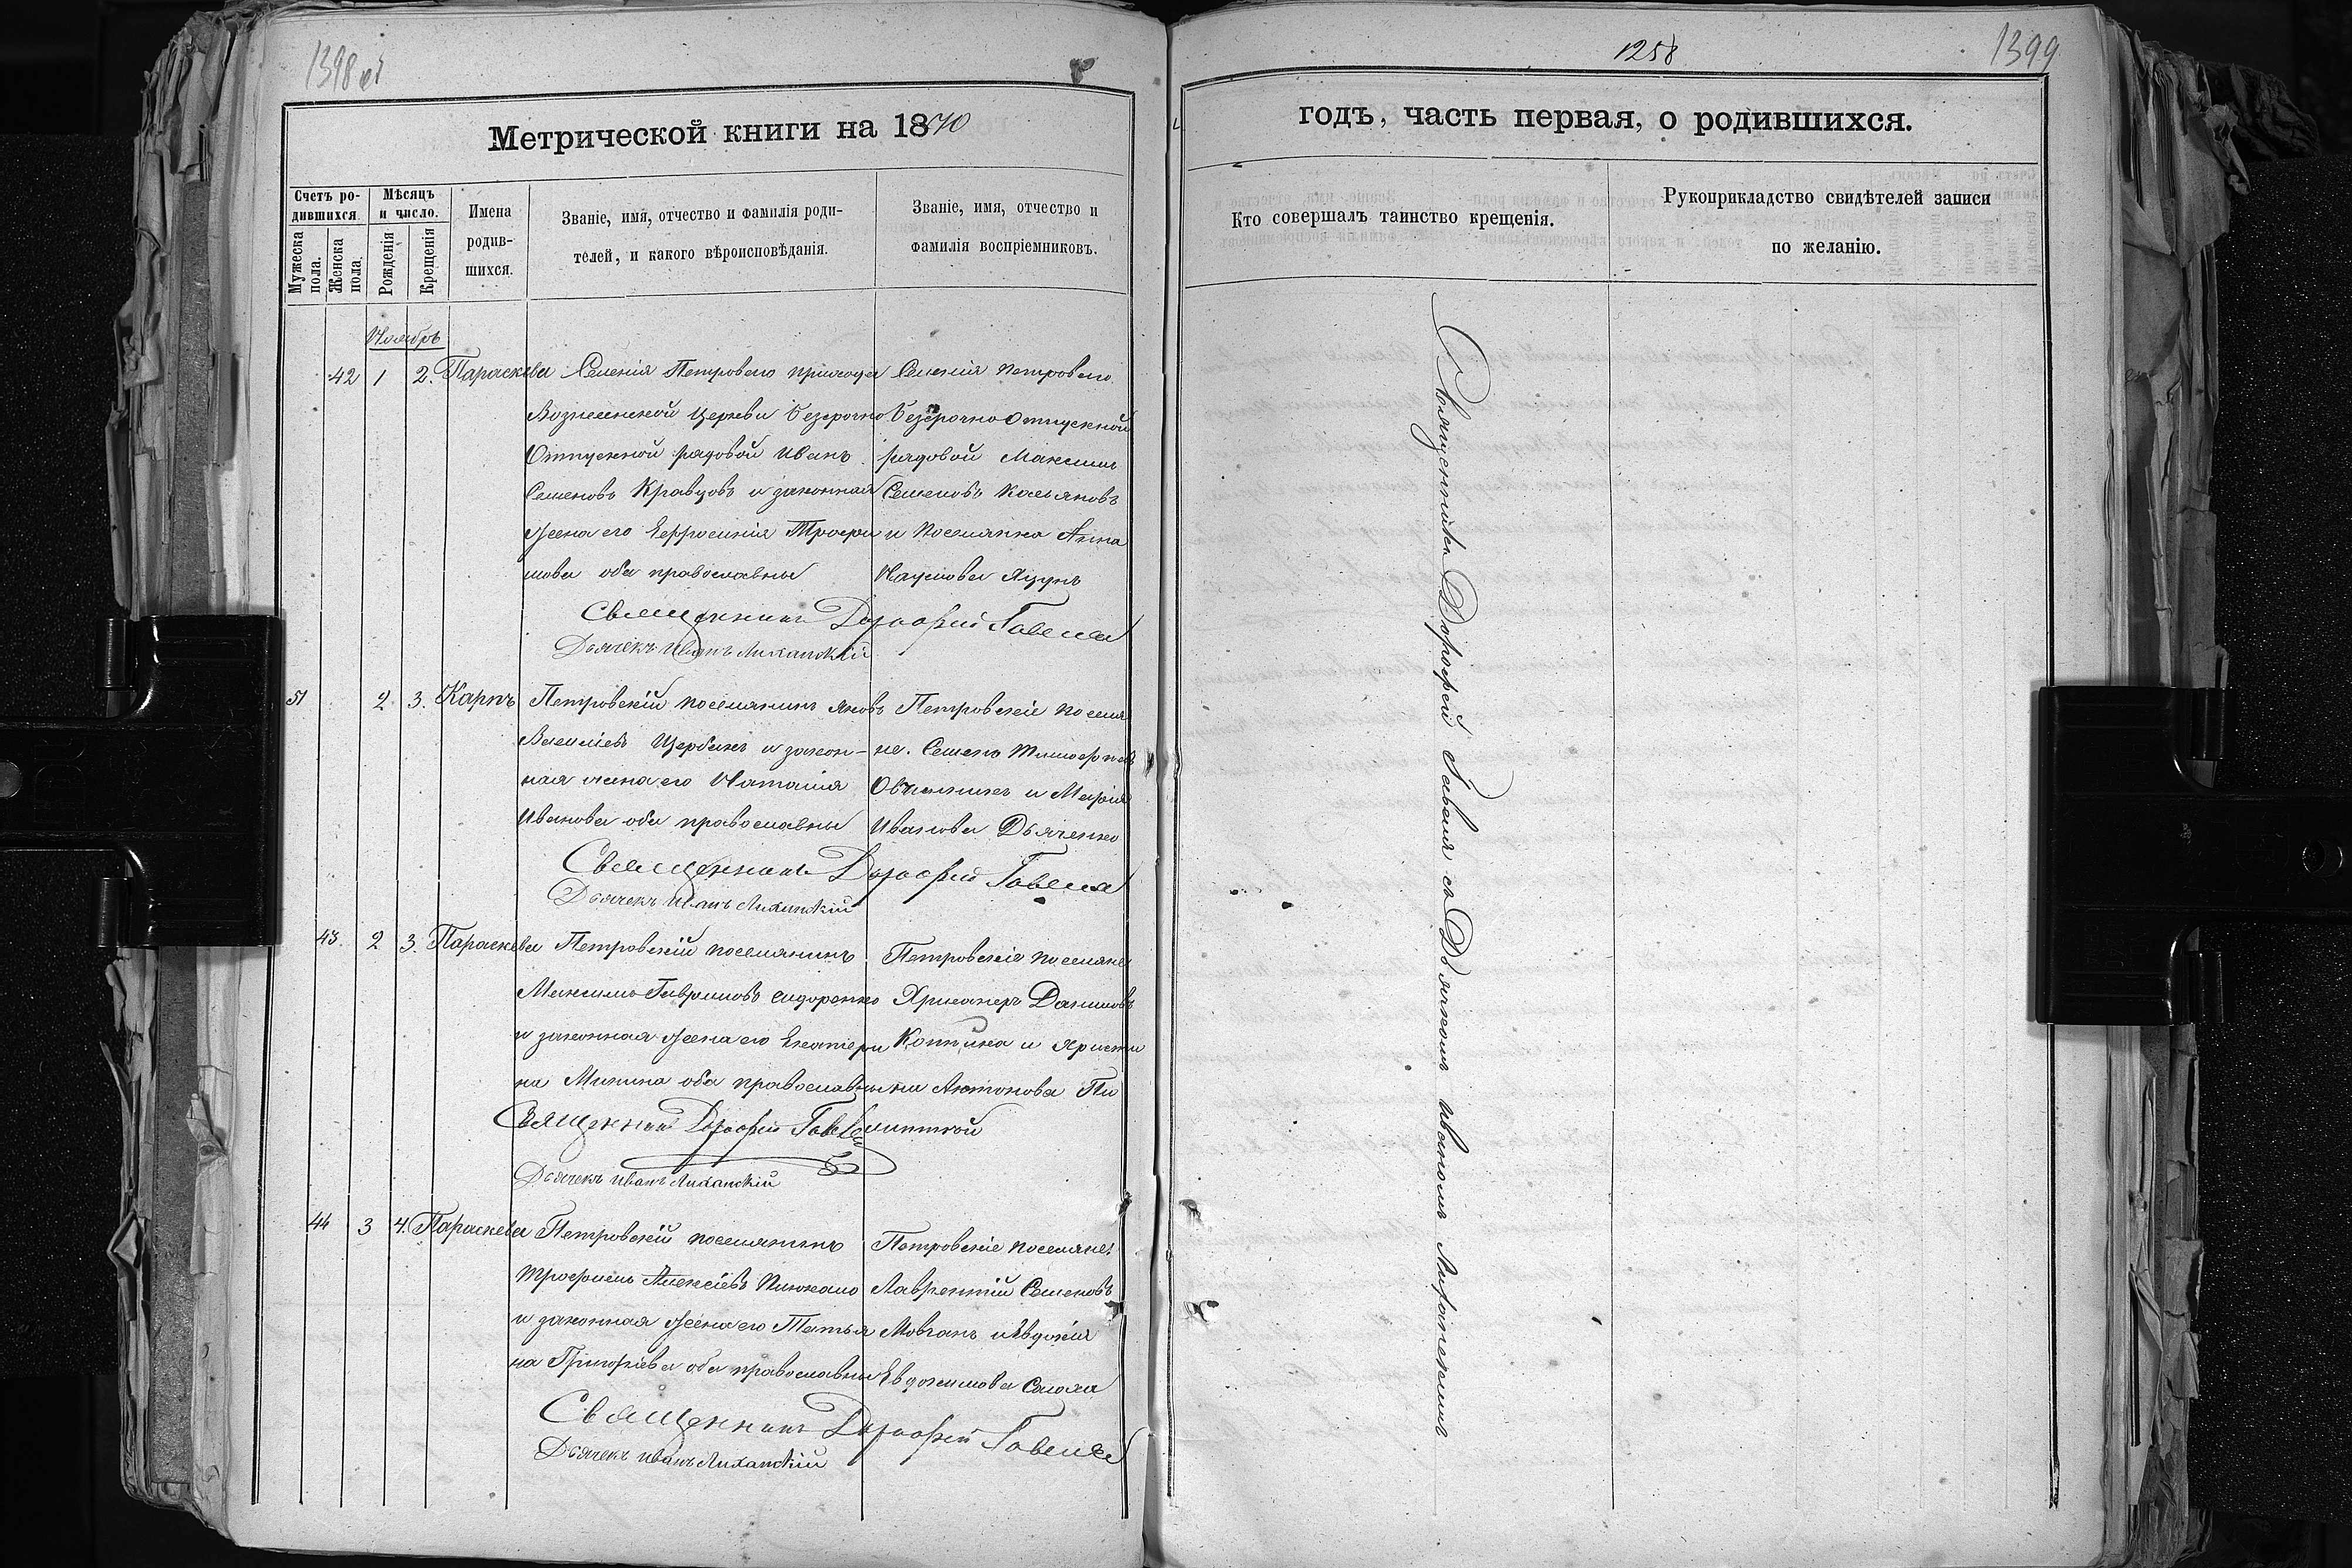 1398 об
Метрической книги на 1870
Счетъ ро-
дившихся.
Мужеска пола.
Женска пола.
Мѣсяцъ
и число.
Рожденія
Крещенія
Имена
родив-
шихся.
Званіе, имя, отчество и фамилія роди-
телей, и какого вѣроисповѣданія.
Званіе, имя, отчество и
фамилія воспріемниковъ.
Ноябрь
42 1 2. Параскева Селенія Петровского прихода
Вознесенской Церкви безсрочно
Отпускной рядовой Иванъ
Семеновъ Кравцовъ и законная
жена его Ефросинія Трофи
мова оба православные
Селенія Петровского
безсрочно Отпускной
рядовой Максимъ
Семеновъ Касьяновъ
и поселянка Анна
Наумова Яцунъ
Священникъ Дорофей Гавеля
Дьячекъ Иванъ
51 2 3. Карпъ Петровскій поселянинъ Яковъ
Васильевъ Щербакъ и закон-
ная жена его Наталія
Иванова оба православные
Петровскіе поселя
не. Семенъ Тимофеевъ
и Марія
Иванова Дьяченко
Священникъ Дорофей Гавеля
Дьячекъ Иванъ
43. 2 3. Параскева Петровскій поселянинъ
Максимъ Гавриловъ Сидоренко
и законная жена его Екатери
на Минина оба православные
Петровскіе поселяне
Данииловъ
и Христи
на Антонова Пи
Священникъ Дорофей Гавеля
Дьячекъ Иванъ
44 3 4. Параскева Петровскій поселянинъ
Трофимъ Алексѣевъ
и законная жена его Татья
на Григорьева оба православные
Петровскіе поселяне:
Лаврентій Семеновъ
Мовчанъ и Евдокія
Евдокимова
Священникъ Дорофей Гавеля
Дьячекъ Иванъ
1258
1399
годъ, часть первая, о родившихся.
Кто совершалъ таинство крещенія.
Рукоприкладство свидѣтелей записи
по желанію.
Священникъ Дорофей Гавеля съ Дьячкомъ Иваномъ